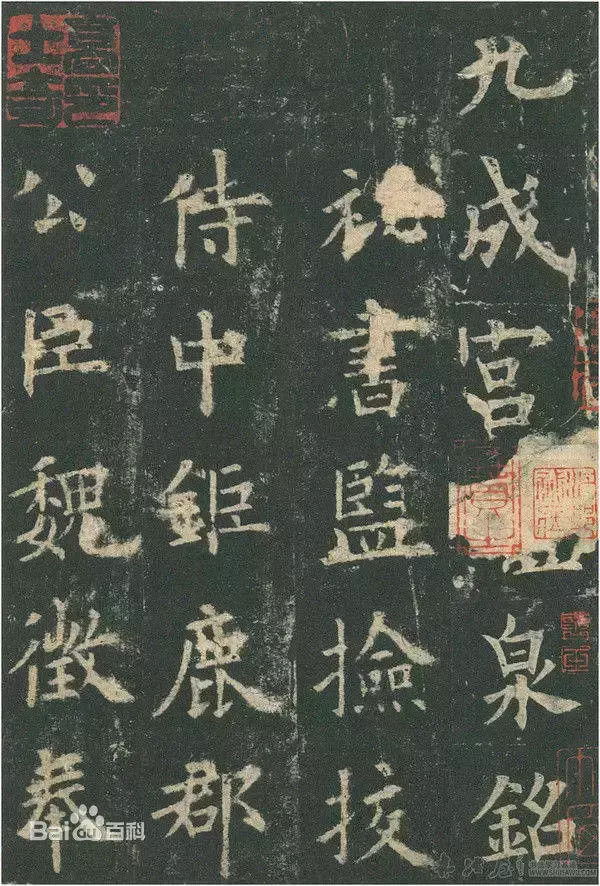 九成宮泉銘
祕書監撿挍
侍中鉅鹿郡
公臣魏徵奉
Bai百科